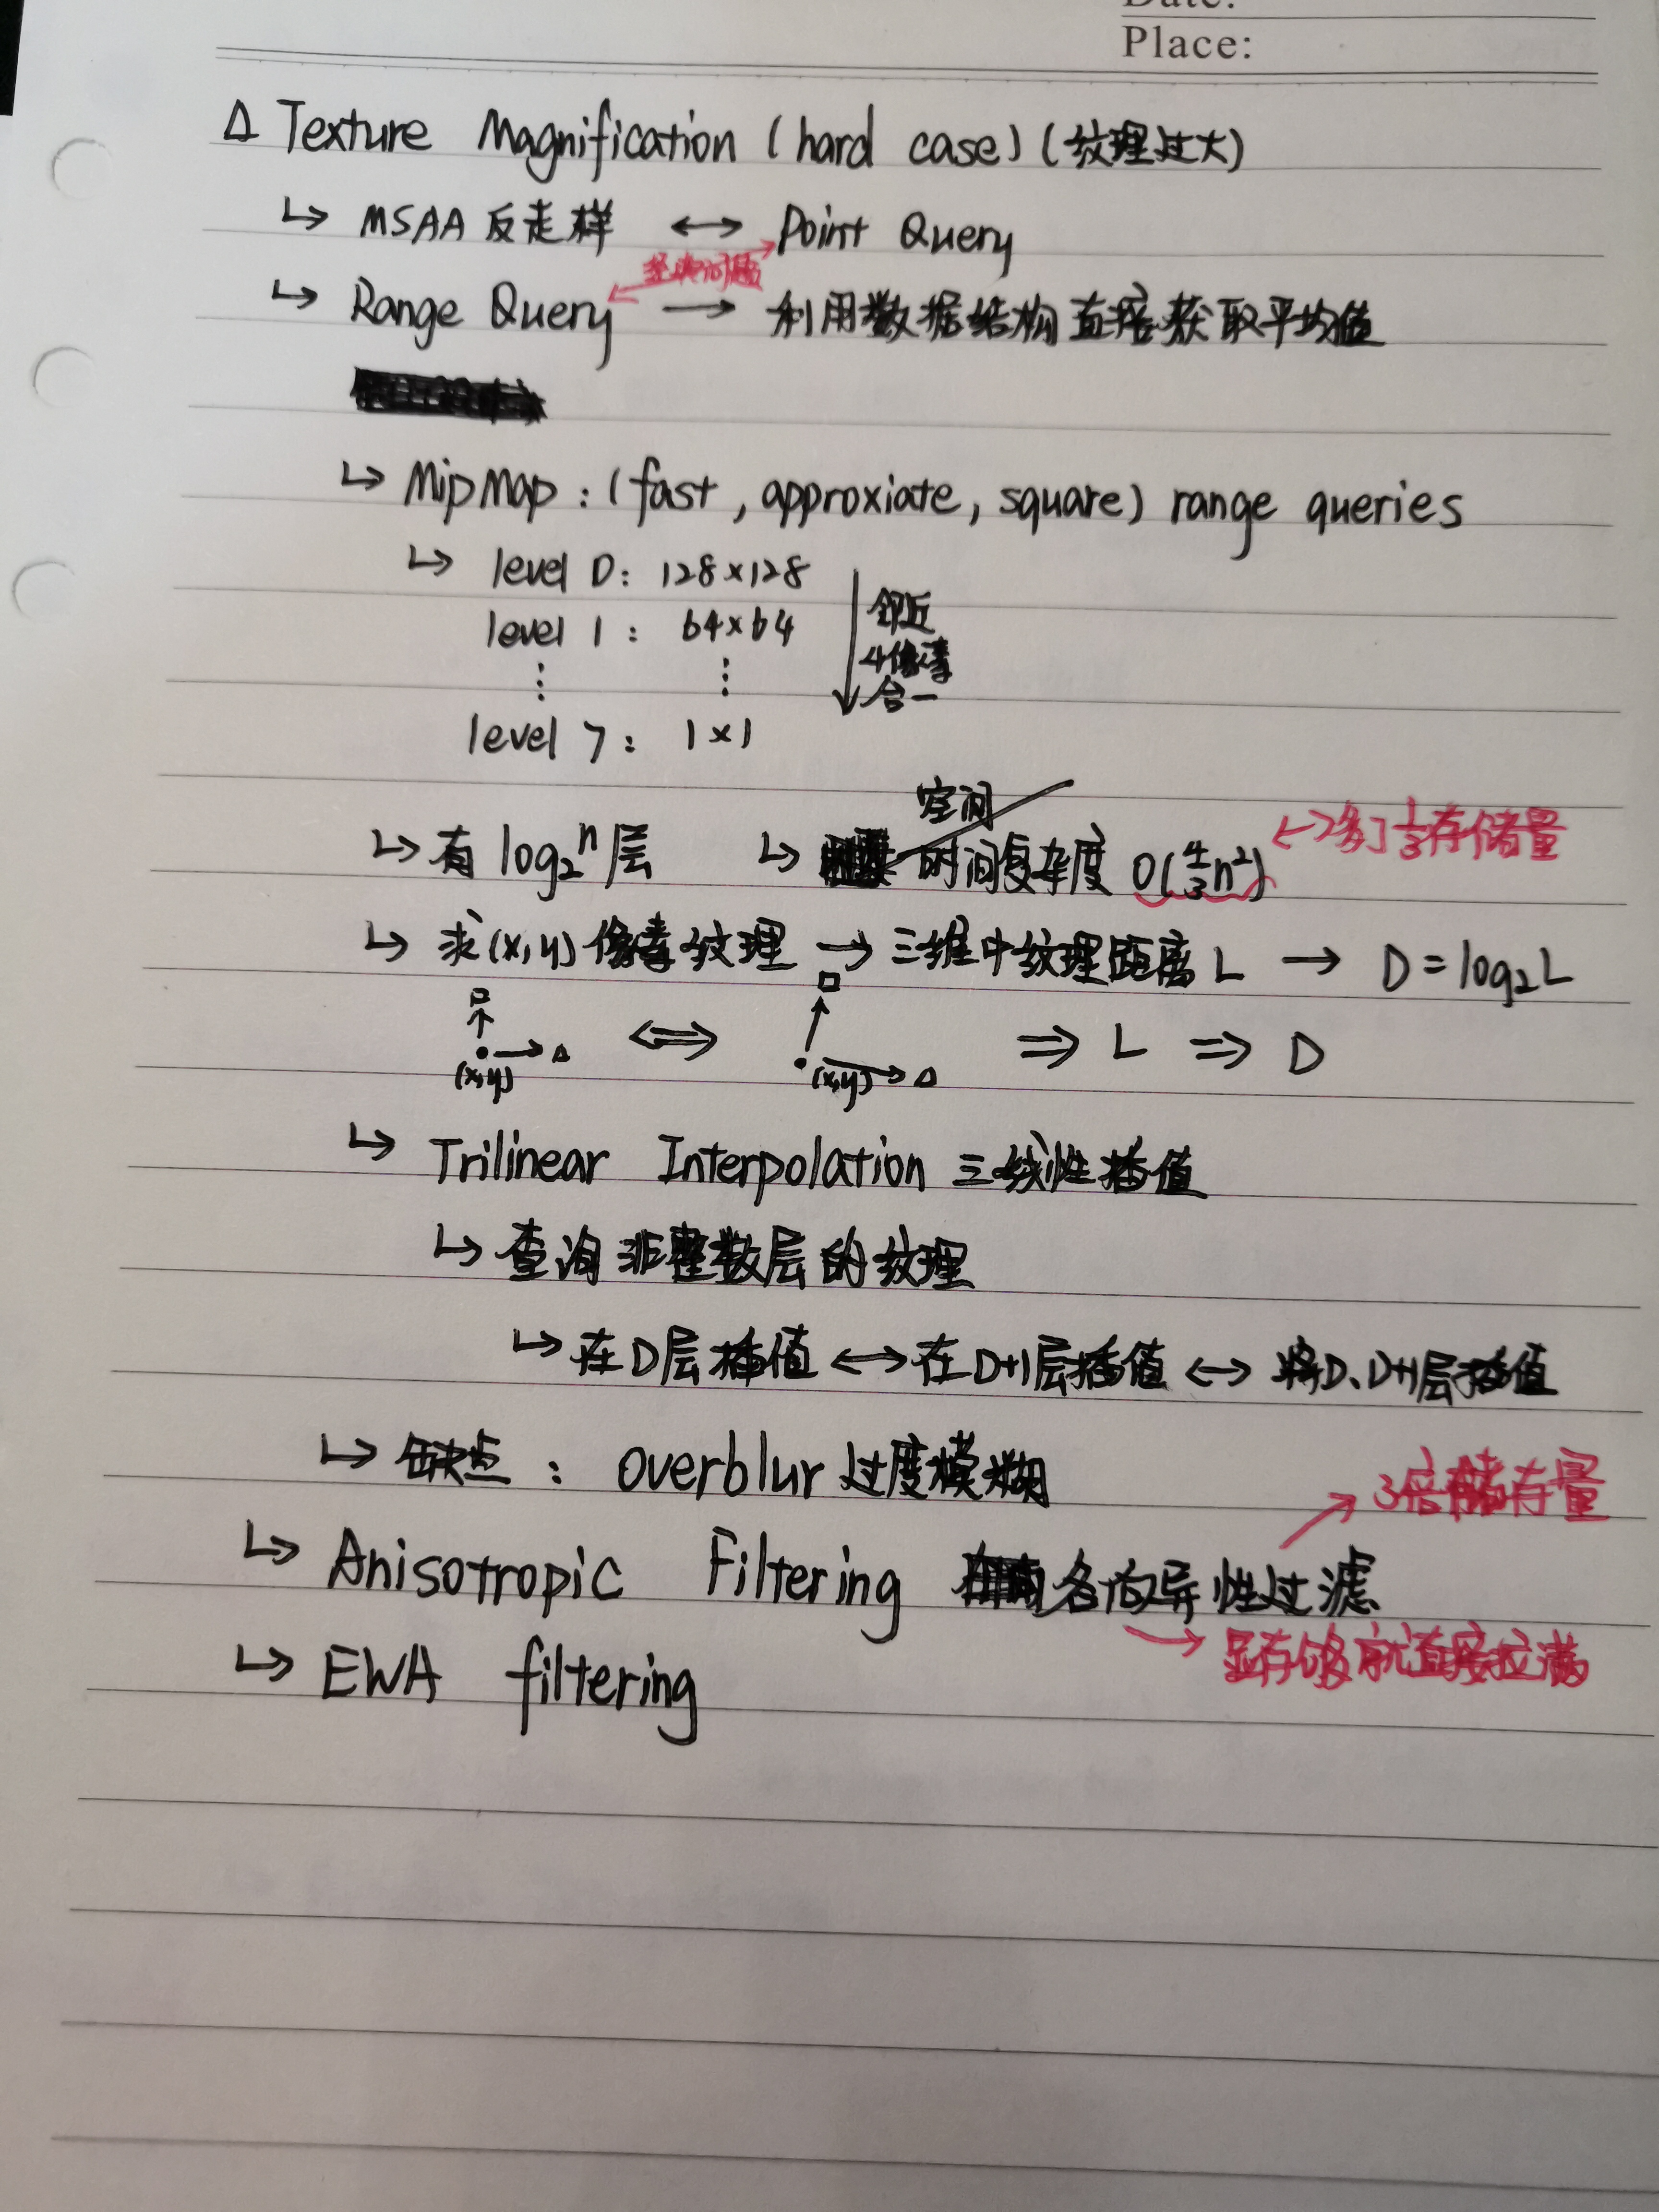 Date:
Place:
Δ Texture Magnification (hard case) (纹理过大)
↳ MSAA 反走样 ↔ Point Query
经典问题
↳ Range Query → 利用数据结构直接获取平均值
↳ MipMap : (fast, approxiate, square) range queries
↳ level 0: 128×128
level 1: 64×64
⋮ ⋮
level 7: 1×1
邻近
4像素
合一
空间
↳ 有 log₂ⁿ 层 ↳ 时间复杂度 O(4/3 n²) ↔ 多了1/3存储量
↳ 求(x,y)像素纹理 → 三维中纹理距离 L → D = log₂L
(x,y) Δ ⇔ (x,y) Δ ⇒ L ⇒ D
↳ Trilinear Interpolation 三线性插值
↳ 查询非整数层的纹理
↳ 在D层插值 ↔ 在D+1层插值 ↔ 将D、D+1层插值
↳ 缺点 : overblur 过度模糊
→ 3倍储存量
↳ Anisotropic Filtering 各向异性过滤
→ 显存够就直接拉满
↳ EWA filtering